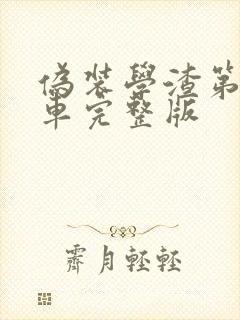 偽裝學渣第
車完整版
霽月輕輕